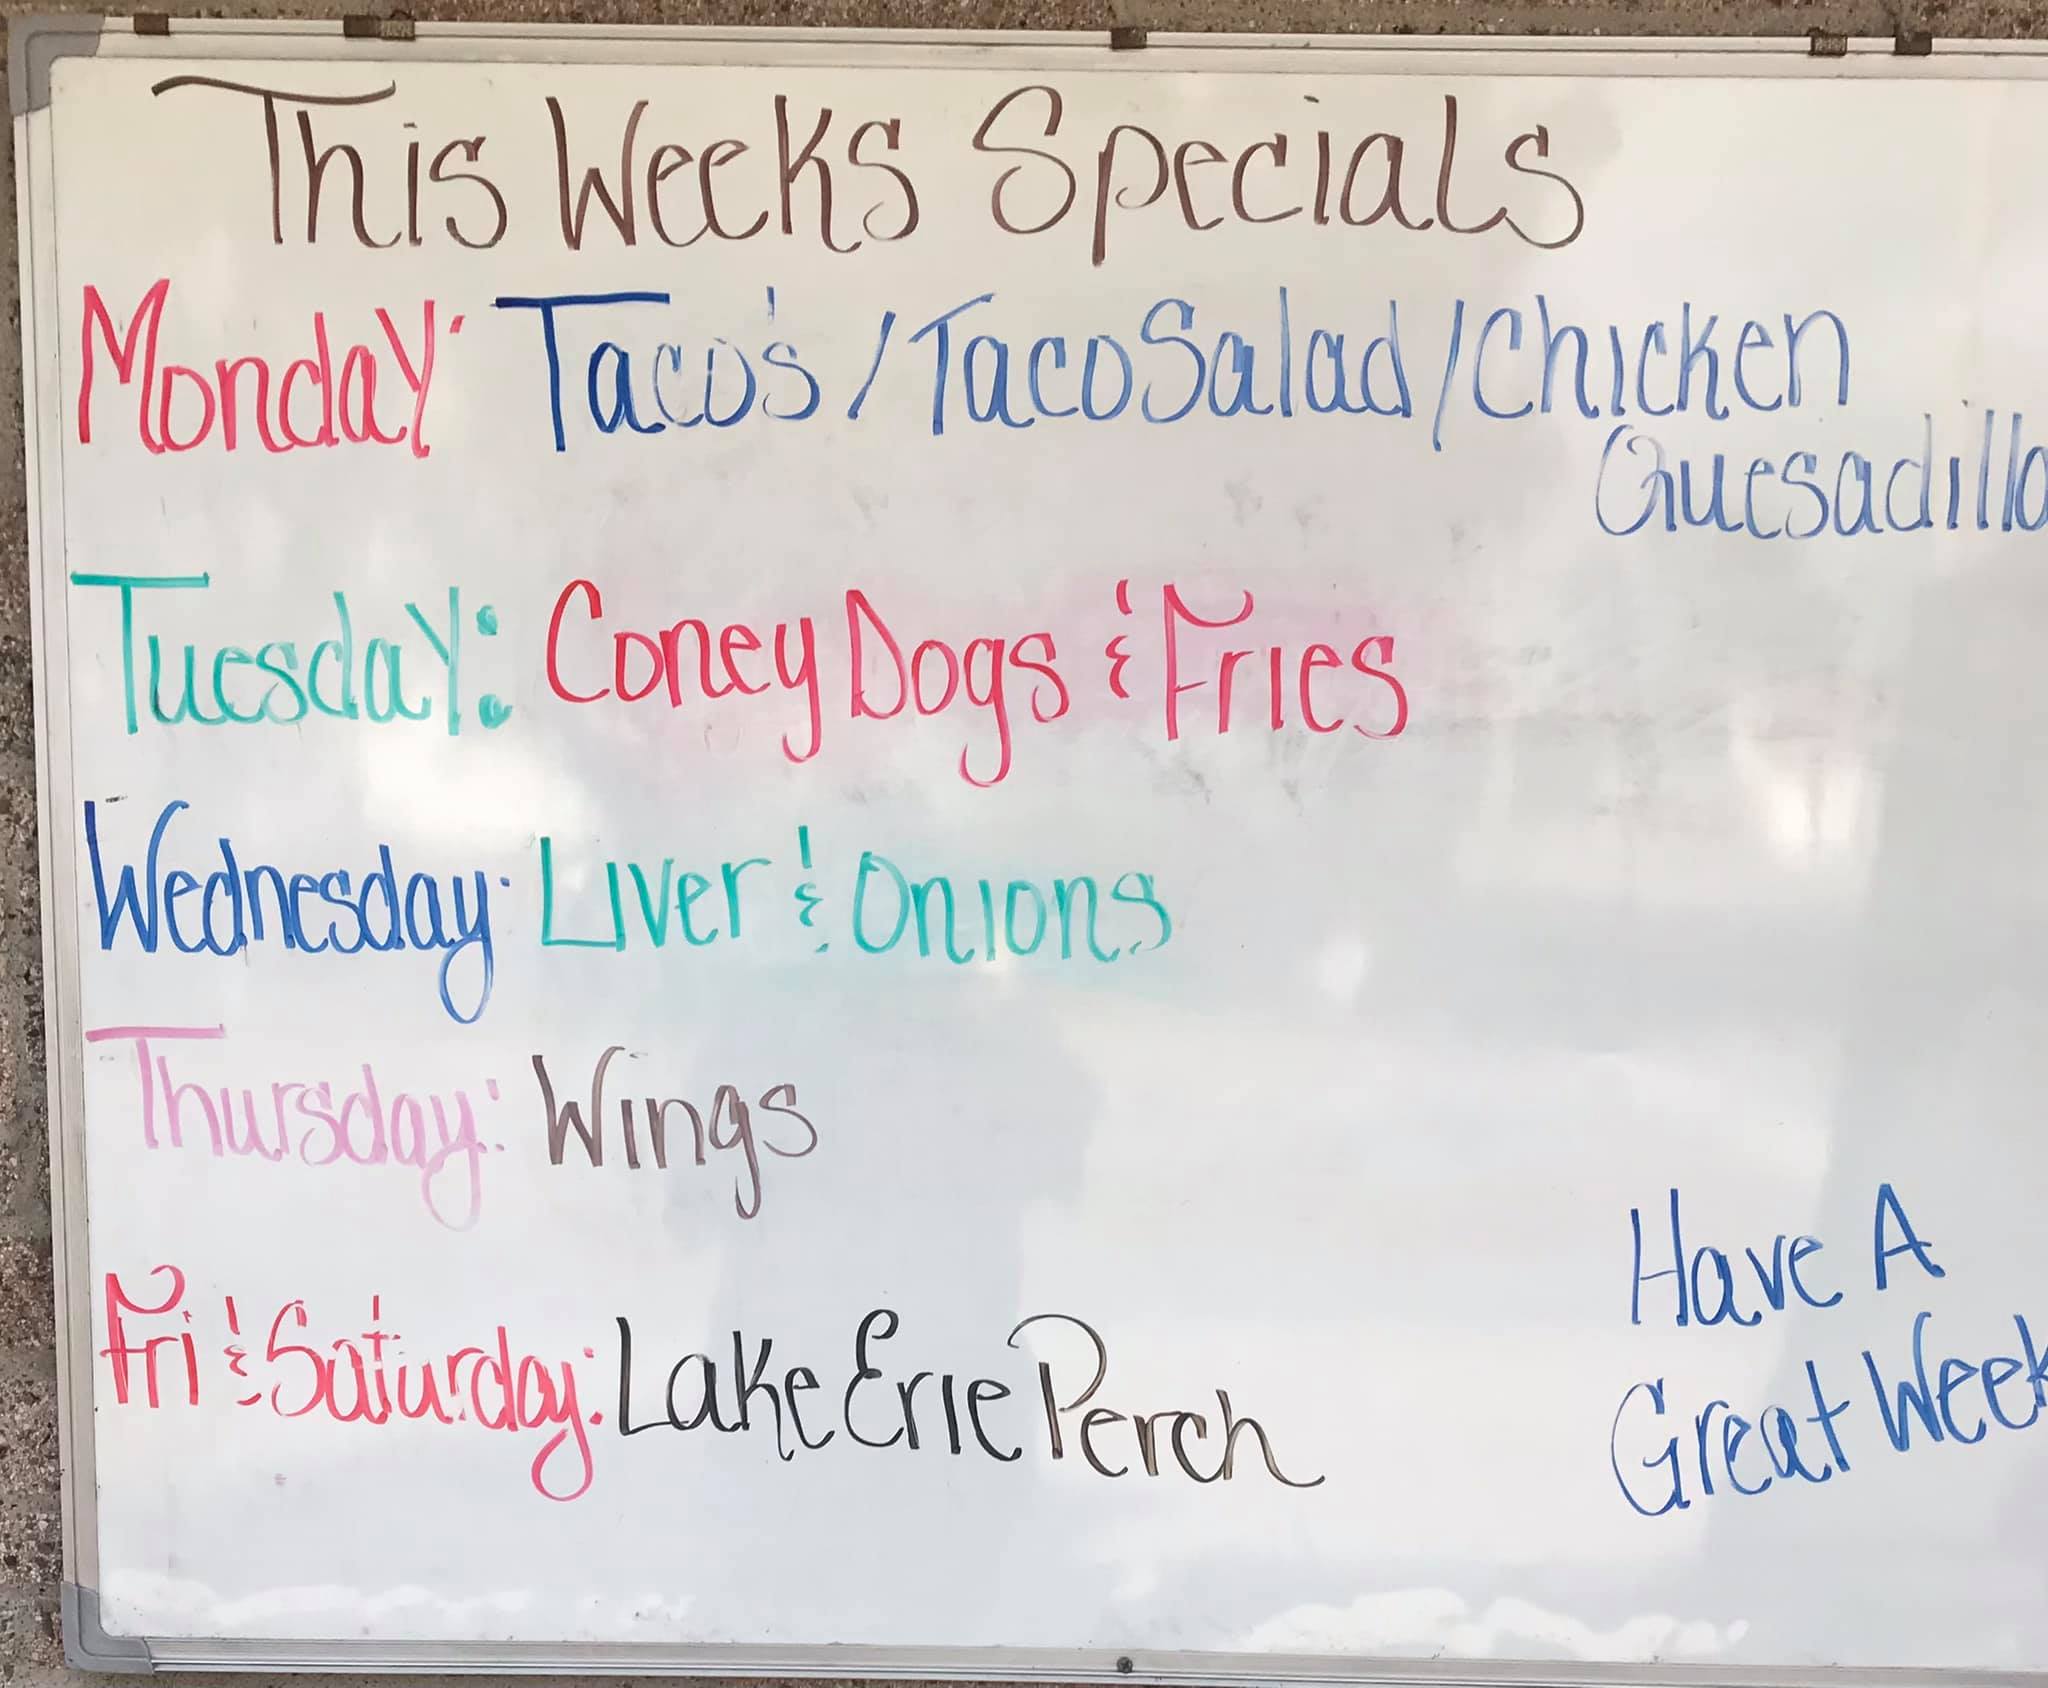 This Weeks Specials
Monday: Taco's / Taco Salad / Chicken
Quesadilla
Tuesday: Coney Dogs & Fries
Wednesday: Liver & Onions
Thursday: Wings
Fri & Saturday: Lake Erie Perch
Have A
Great Week